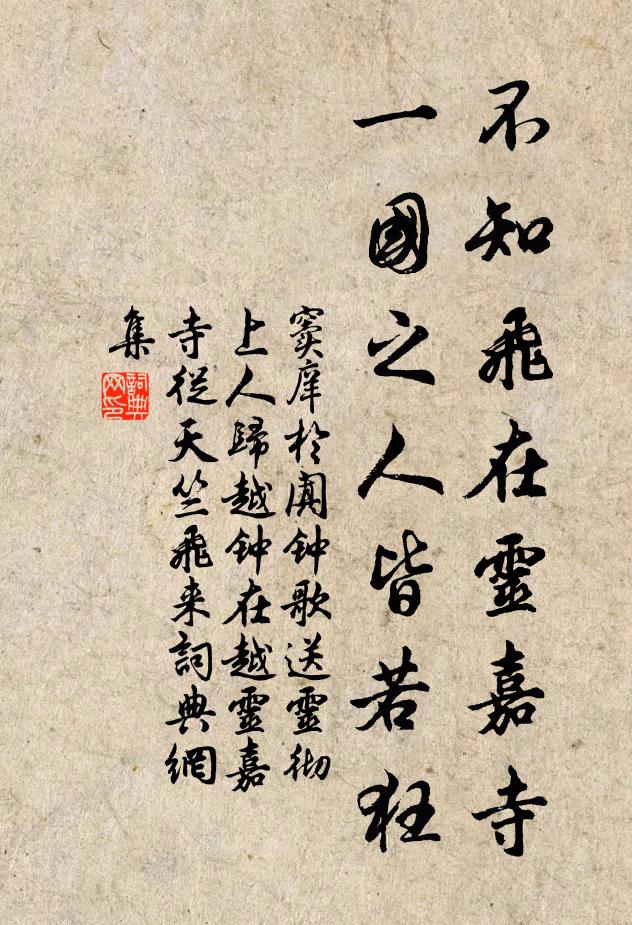 不知飛在靈嘉寺
一國之人皆若狂
竇庠於闐钟歌送靈彻
上人歸越钟在越靈嘉
寺從天竺飛来詞典網
集
詞典网印